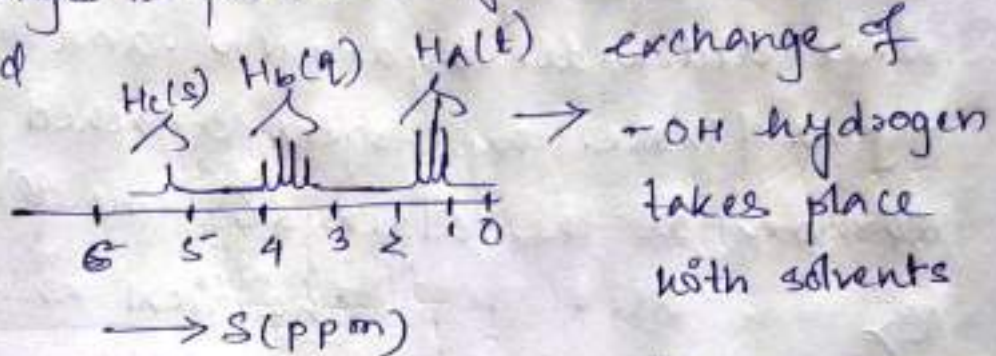 d
Hc(s) Hb(q) HA(t) exchange of
→ -OH hydrogen
takes place
with solvents
6 5 4 3 2 1 0
→ δ(ppm)